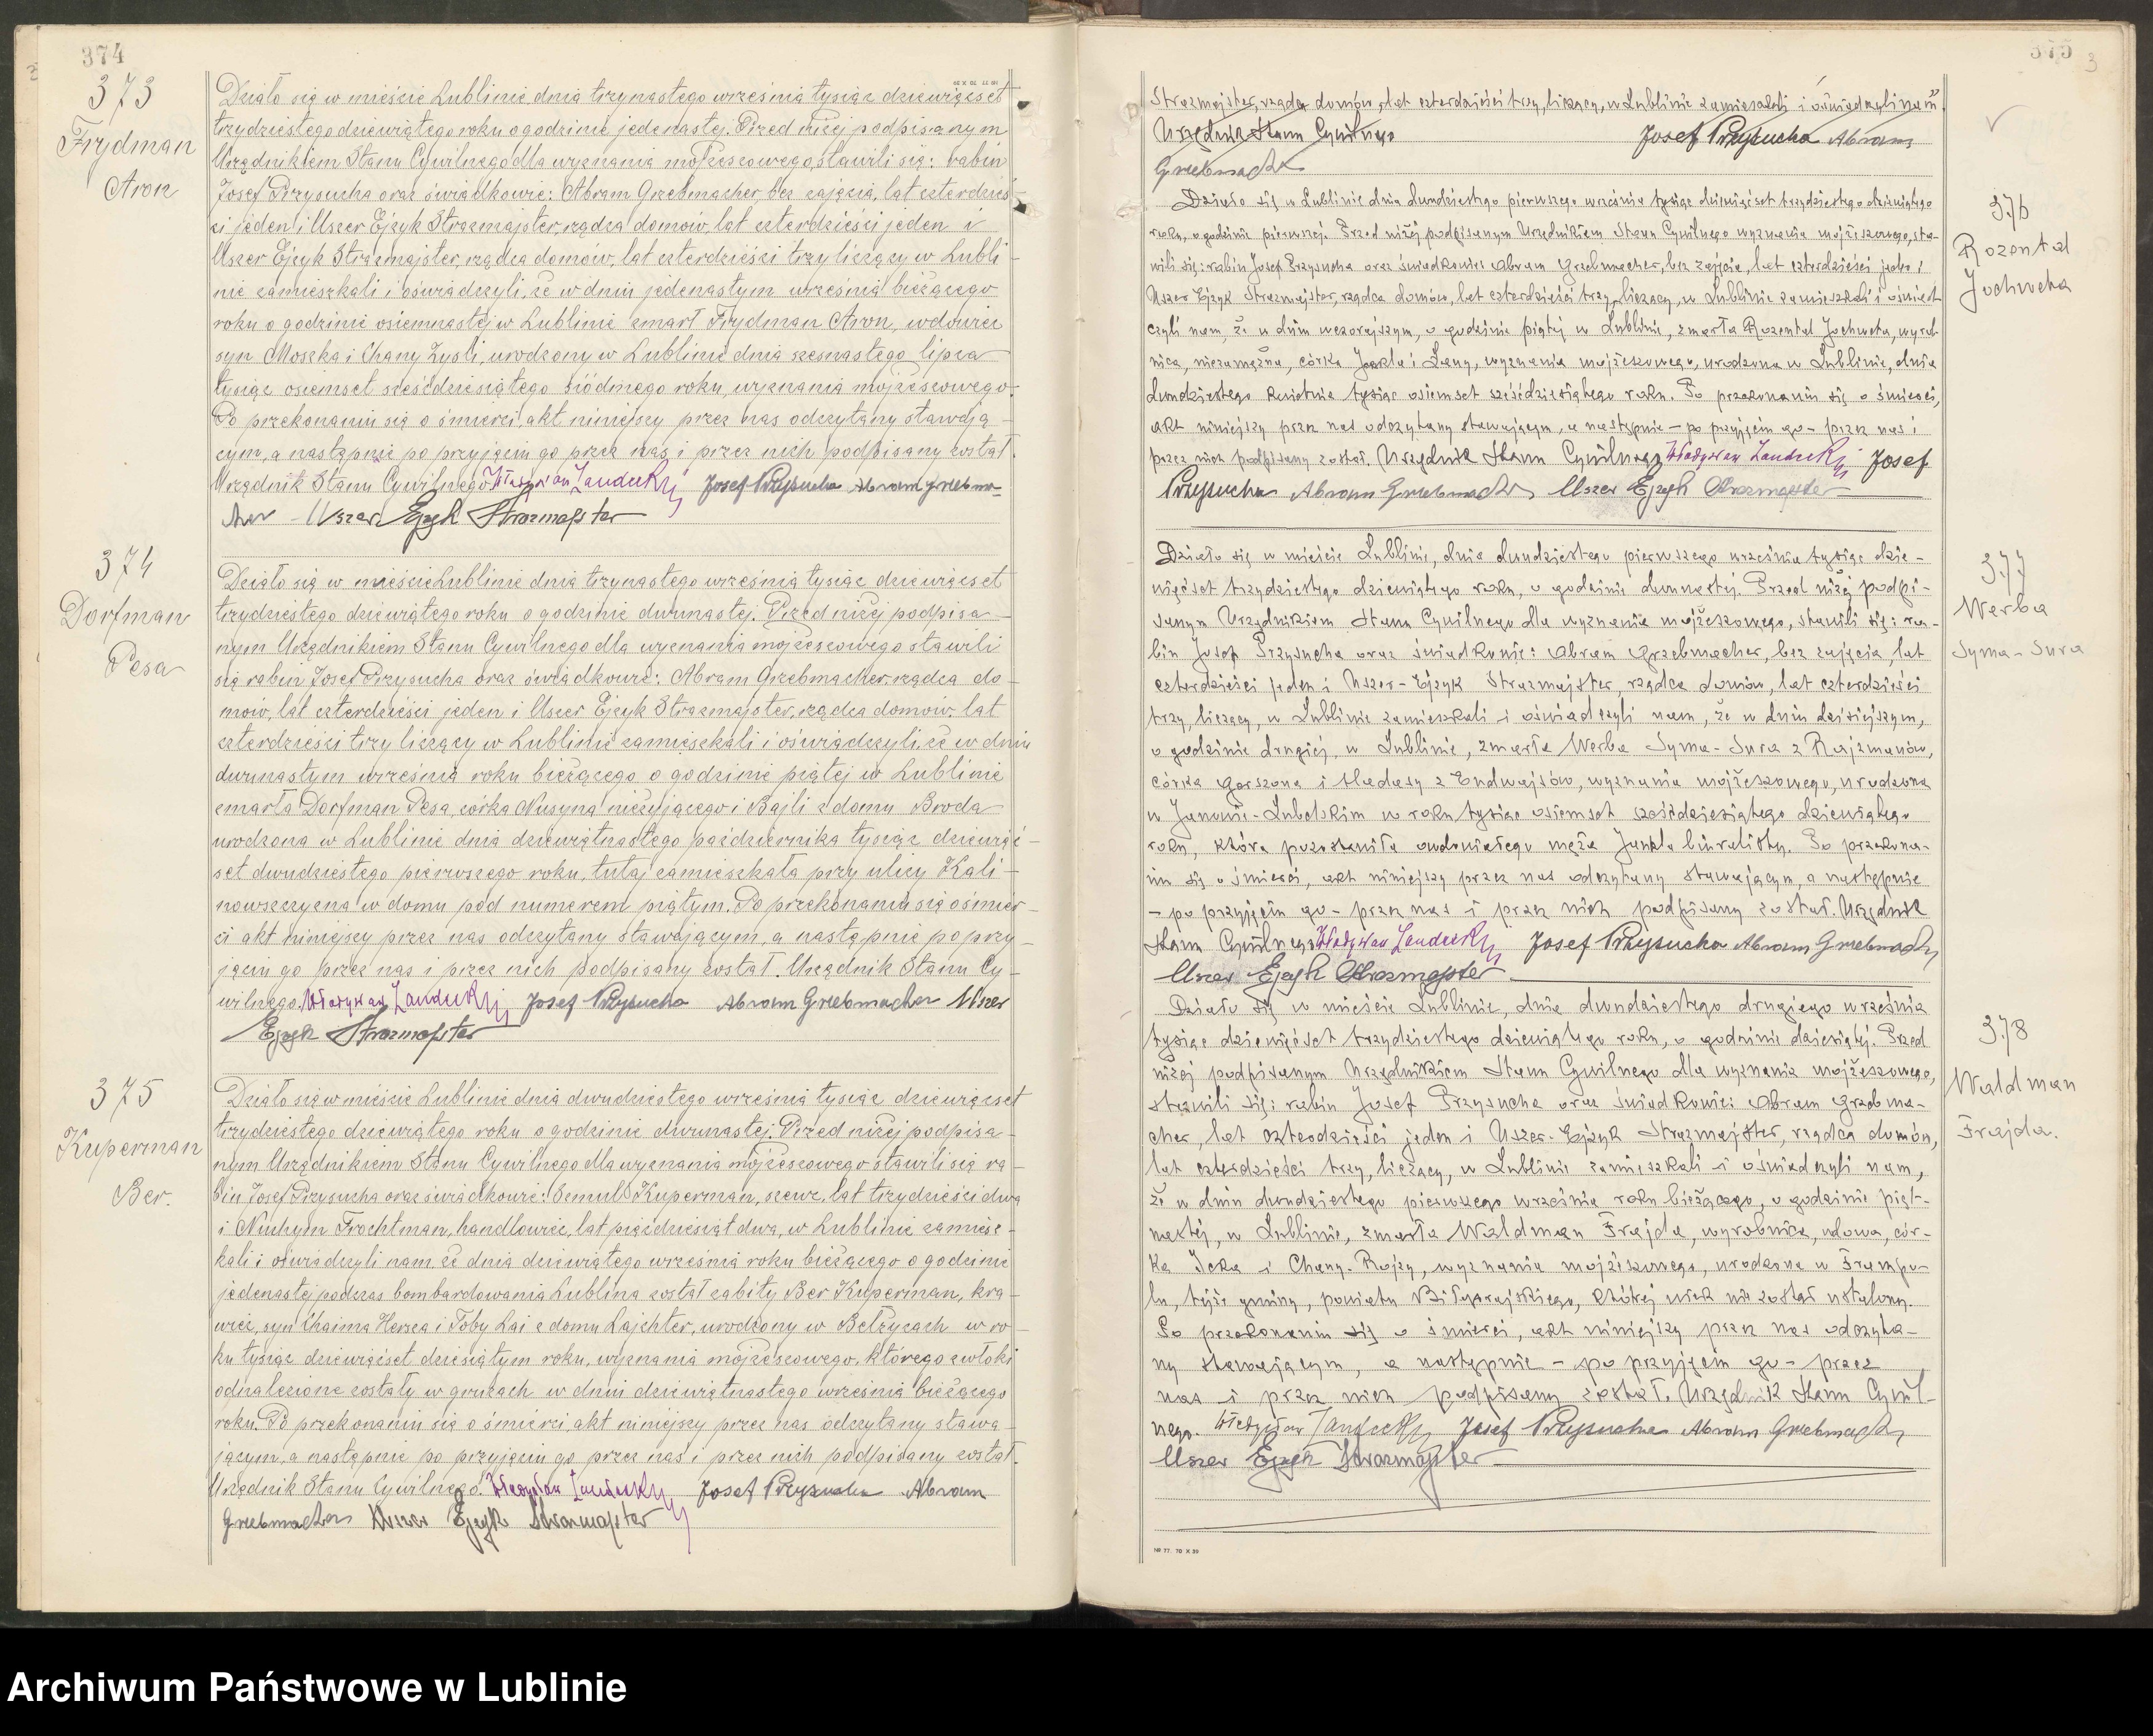 374
373
Frydman
Aron
Działo się w mieście Lublinie dnia trzynastego września tysiąc dziewięćset
trzydziestego dziewiątego roku o godzinie jedenastej. Przed niżej podpisanym
Urzędnikiem Stanu Cywilnego dla wyznania mojżeszowego, stawili się: rabin
Josef Przysucha oraz świadkowie: Abram Grzebmacher, bez zajęcia, lat czterdzieś-
ci jeden i Uszer Ejzyk Strazmajster, rządca domów, lat czterdzieści jeden i
Uszer Ejzyk Strazmajster, rządca domów, lat czterdzieści trzy liczący w Lubli-
nie zamieszkali i oświadczyli, że w dniu jedenastym września bieżącego
roku o godzinie osiemnastej w Lublinie zmarł Frydman Aron, wdowiec
syn Moszka i Chany Zysli, urodzony w Lublinie dnia szesnastego lipca
tysiąc osiemset sześćdziesiątego siódmego roku, wyznania mojżeszowego.
Po przekonaniu się o śmierci, akt niniejszy przez nas odczytany stawają-
cym, a następnie po przyjęciu go przez nas i przez nich podpisany został.
Urzędnik Stanu Cywilnego Josef Przysucha Abram Grzebma-
cher Uszer Ejzyk Strazmajster
374
Dorfman
Pesa
Działo się w mieście Lublinie dnia trzynastego września tysiąc dziewięćset
trzydziestego dziewiątego roku o godzinie dwunastej. Przed niżej podpisa-
nym Urzędnikiem Stanu Cywilnego dla wyznania mojżeszowego stawili
się rabin Josef Przysucha oraz świadkowie: Abram Grzebmacher, rządca do-
mów, lat czterdzieści jeden i Uszer Ejzyk Strazmajster, rządca domów, lat
czterdzieści trzy liczący w Lublinie zamieszkali i oświadczyli, że w dniu
dwunastym września roku bieżącego o godzinie piątej w Lublinie
zmarła Dorfman Pesa, córka Nusyna nieżyjącego i Bajli z domu Broda
urodzona w Lublinie dnia dziewiętnastego października tysiąc dziewięć-
set dwudziestego pierwszego roku, tutaj zamieszkała przy ulicy Kali-
nowszczyzna w domu pod numerem piątym. Po przekonaniu się o śmier-
ci akt niniejszy przez nas odczytany stawającym, a następnie po przy-
jęciu go przez nas i przez nich podpisany został. Urzędnik Stanu Cy-
wilnego. Josef Przysucha Abram Grzebmacher Uszer
Ejzyk Strazmajster
375
Kuperman
Ber.
Działo się w mieście Lublinie dnia dwudziestego września tysiąc dziewięćset
trzydziestego dziewiątego roku o godzinie dwunastej. Przed niżej podpisa-
nym Urzędnikiem Stanu Cywilnego dla wyznania mojżeszowego stawili się ra-
bin Josef Przysucha oraz świadkowie: Szmul Kuperman, szewc, lat trzydzieści dwa
i Nuchym Frochtman, handlowiec, lat pięćdziesiąt dwa, w Lublinie zamiesz-
kali i oświadczyli nam, że dnia dziewiątego września roku bieżącego o godzinie
jedenastej podczas bombardowania Lublina został zabity Ber Kuperman, kra-
wiec, syn Chaima Hersza i Toby Łai z domu Lajchter, urodzony w Bełżycach w ro-
ku tysiąc dziewięćset dziesiątym roku, wyznania mojżeszowego, którego zwłoki
odnalezione zostały w gruzach w dniu dziewiętnastego września bieżącego
roku. Po przekonaniu się o śmierci, akt niniejszy przez nas odczytany stawa-
jącym, a następnie po przyjęciu go przez nas i przez nich podpisany został.
Urzędnik Stanu Cywilnego. Josef Przysucha Abram
Grzebmacher Uszer Ejzyk Strazmajster
375
3
Strazmajster, rządca domów, lat czterdzieści trzy, liczący, w Lublinie zamieszkali i oświadczyli nam
Urzędnik Stanu Cywilnego Josef Przysucha Abram
Grzebmacher
376
Rozental
Jochweta
Działo się w Lublinie dnia dwudziestego pierwszego września tysiąc dziewięćset trzydziestego dziewiątego
roku, o godzinie pierwszej. Przed niżej podpisanym Urzędnikiem Stanu Cywilnego wyznania mojżeszowego, sta-
wili się: rabin Josef Przysucha oraz świadkowie: Abram Grzebmacher, bez zajęcia, lat czterdzieści jeden i
Uszer Ejzyk Strazmajster, rządca domów, lat czterdzieści trzy, liczący, w Lublinie zamieszkali i oświad-
czyli nam, że w dniu wczorajszym, o godzinie piątej w Lublinie, zmarła Rozental Jochweta, wyrob-
nica, niezamężna, córka Jankla i Łany, wyznania mojżeszowego, urodzona w Lublinie, dnia
dwudziestego kwietnia tysiąc osiemset sześćdziesiątego roku. Po przekonaniu się o śmierci,
akt niniejszy przez nas odczytany stawającym, a następnie – po przyjęciu go – przez nas i
przez nich podpisany został. Urzędnik Stanu Cywilnego Josef
Przysucha Abram Grzebmacher Uszer Ejzyk Strazmajster
377
Werba
Syma-Sura
Działo się w mieście Lublinie, dnia dwudziestego pierwszego września tysiąc dzie-
więćset trzydziestego dziewiątego roku, o godzinie dwunastej. Przed niżej podpi-
sanym Urzędnikiem Stanu Cywilnego dla wyznania mojżeszowego, stawili się: ra-
bin Josef Przysucha oraz świadkowie: Abram Grzebmacher, bez zajęcia, lat
czterdzieści jeden i Uszer-Ejzyk Strazmajster, rządca domów, lat czterdzieści
trzy, liczący, w Lublinie zamieszkali i oświadczyli nam, że w dniu dzisiejszym,
o godzinie drugiej, w Lublinie, zmarła Werba Syma-Sura z Rajzmanów,
córka Gerszona i Hadasy z wyznania mojżeszowego, urodzona
w Janowie-Lubelskim w roku tysiąc osiemset sześćdziesiątego dziewiątego
roku, która pozostawiła owdowiałego męża Jankla biuralistę. Po przekona-
niu się o śmierci, akt niniejszy przez nas odczytany stawającym, a następnie
– po przyjęciu go – przez nas i przez nich podpisany został. Urzędnik
Stanu Cywilnego Josef Przysucha Abram Grzebmacher
Uszer Ejzyk Strazmajster
378
Waldman
Frajda.
Działo się w mieście Lublinie, dnia dwudziestego drugiego września
tysiąc dziewięćset trzydziestego dziewiątego roku, o godzinie dziesiątej. Przed
niżej podpisanym Urzędnikiem Stanu Cywilnego dla wyznania mojżeszowego,
stawili się: rabin Josef Przysucha oraz świadkowie: Abram Grzebma-
cher, lat czterdzieści jeden i Uszer-Ejzyk Strazmajster, rządca domów,
lat czterdzieści trzy, liczący, w Lublinie zamieszkali i oświadczyli nam,
że w dniu dwudziestego pierwszego września roku bieżącego, o godzinie pięt-
nastej, w Lublinie, zmarła Waldman Frajda, wyrobnica, wdowa, cór-
ka Icka i Chany-Rojzy, wyznania mojżeszowego, urodzona w Frampo-
lu, tejże gminy, powiatu Biłgorajskiego, której wiek nie został ustalony.
Po przekonaniu się o śmierci, akt niniejszy przez nas odczyta-
ny stawającym, a następnie – po przyjęciu go – przez
nas i przez nich podpisany został. Urzędnik Stanu Cywil-
nego. Josef Przysucha Abram Grzebmacher
Uszer Ejzyk Strazmajster
Nº 77. 70 X 39
Archiwum Państwowe w Lublinie